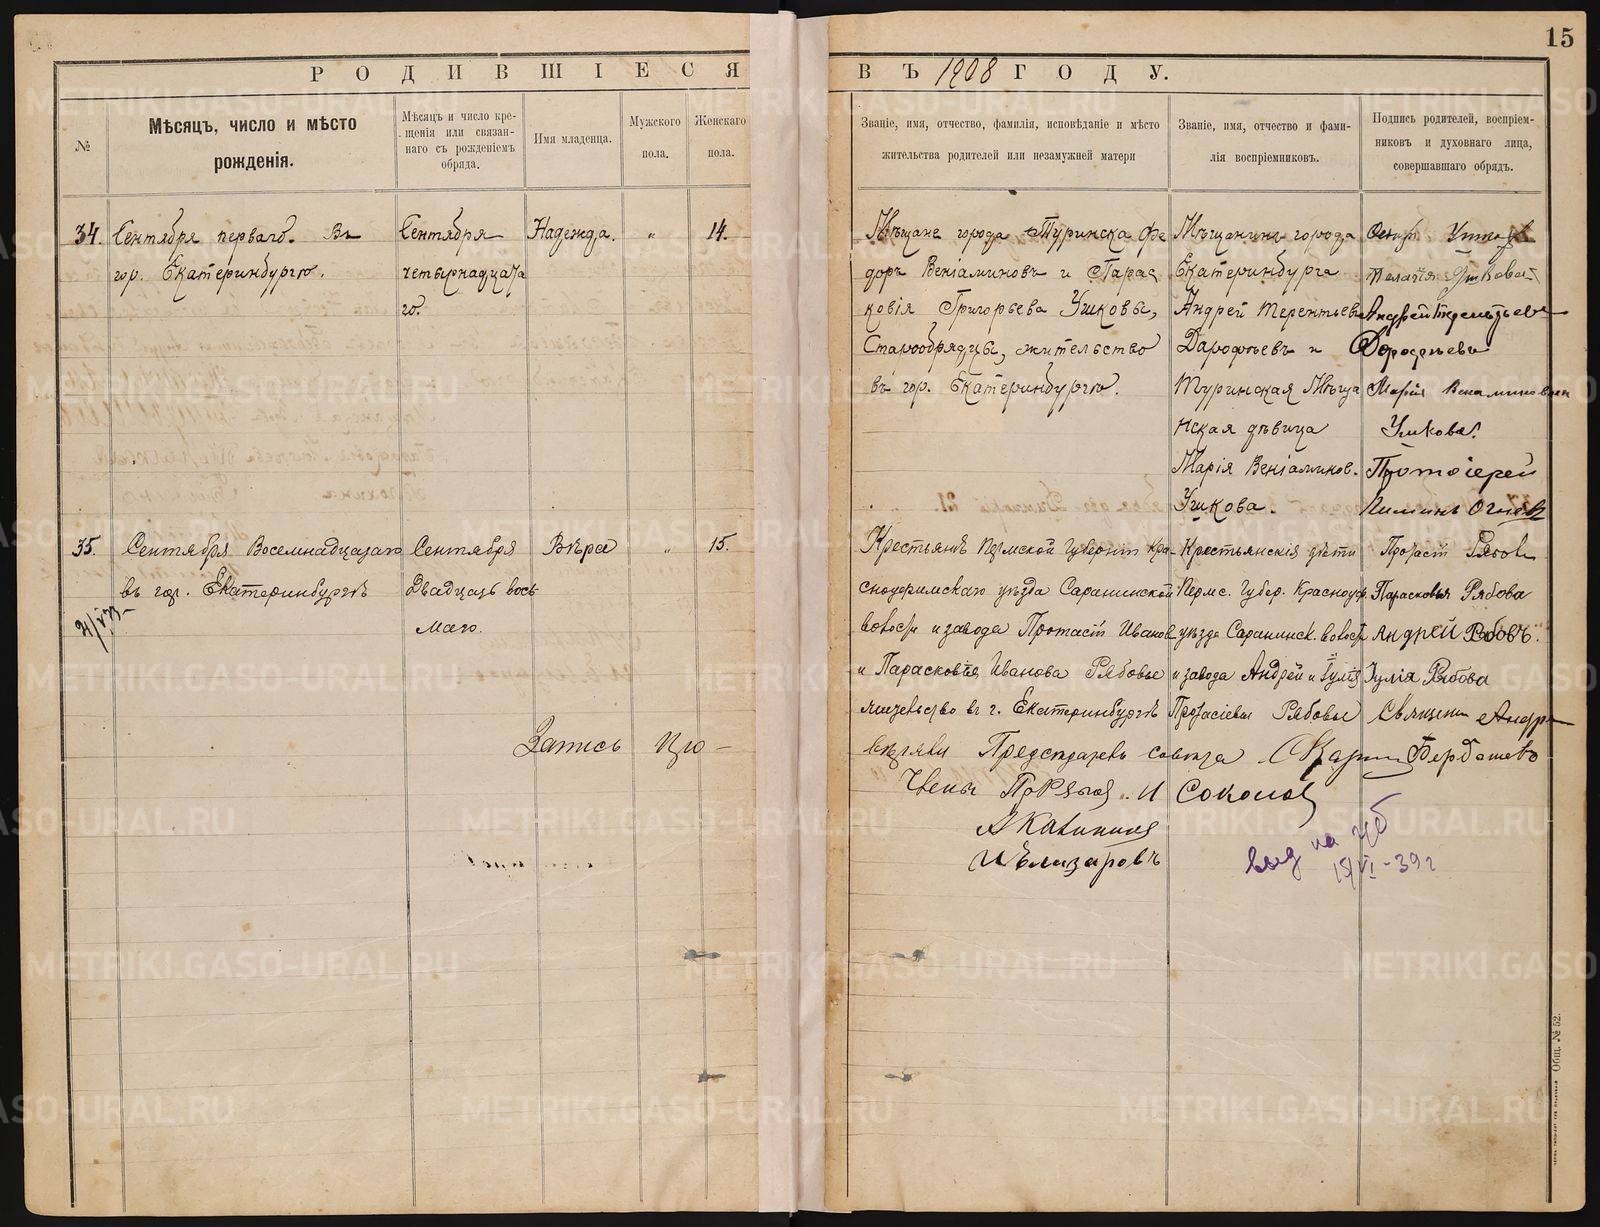 15
РОДИВШІЕСЯ ВЪ 1908 ГОДУ.
№
Мѣсяцъ, число и мѣсто
рожденія.
Мѣсяцъ и число кре-
щенія или связан-
наго съ рожденіемъ
обряда.
Имя младенца.
Мужского
пола.
Женскаго
пола.
Званіе, имя, отчество, фамилія, исповѣданіе и мѣсто
жительства родителей или незамужней матери
Званіе, имя, отчество и фами-
лія воспріемниковъ.
Подпись родителей, воспріем-
никовъ и духовнаго лица,
совершавшаго обрядъ.
34.
Сентября перваго. Въ
гор. Екатеринбургѣ.
Сентября
четырнадцата
го.
Надежда.
"
14.
Мѣщане города Туринска Фе
доръ Веніаминовъ и Парас
ковія Григорьева Ушковы,
Старообрядцы, жительство
въ гор. Екатеринбургѣ.
Мѣщанинъ города
Екатеринбурга
Андрей Терентьевъ
Дорофѣевъ и
Туринская Мѣща
нская дѣвица
Марія Веніаминов.
Ушкова.
Ушкова
Андрей Терентьевъ
Дорофѣевъ
Марія
Ушкова.
Протоіерей
35.
Сентября Восемнадцатаго
въ гор. Екатеринбургѣ
Сентября
Двадцать вось
маго.
Вѣра
"
15.
Крестьянъ Пермской Губерніи Кра-
сноуфимскаго уѣзда Саранинской
волости и завода Протасій Иванов
и Парасковья Иванова Рябовы
жительство въ г. Екатеринбургѣ
Крестьянскія дѣти
Пермс. Губер. Красноуф.
уѣзда Саранинск. волост
и завода Андрей и Іулія
Протасіевы Рябовы
Протасій Рябовъ
Парасковья Рябова
Андрей Рябовъ.
Іулія Рябова
Запись сію
Предсѣдатель совѣта
Члены
и Соколов
А Калинин
И Елизаровъ
выд на
15/VI-39г
Общ. № 52.
METRIKI.GASO-URAL.RU